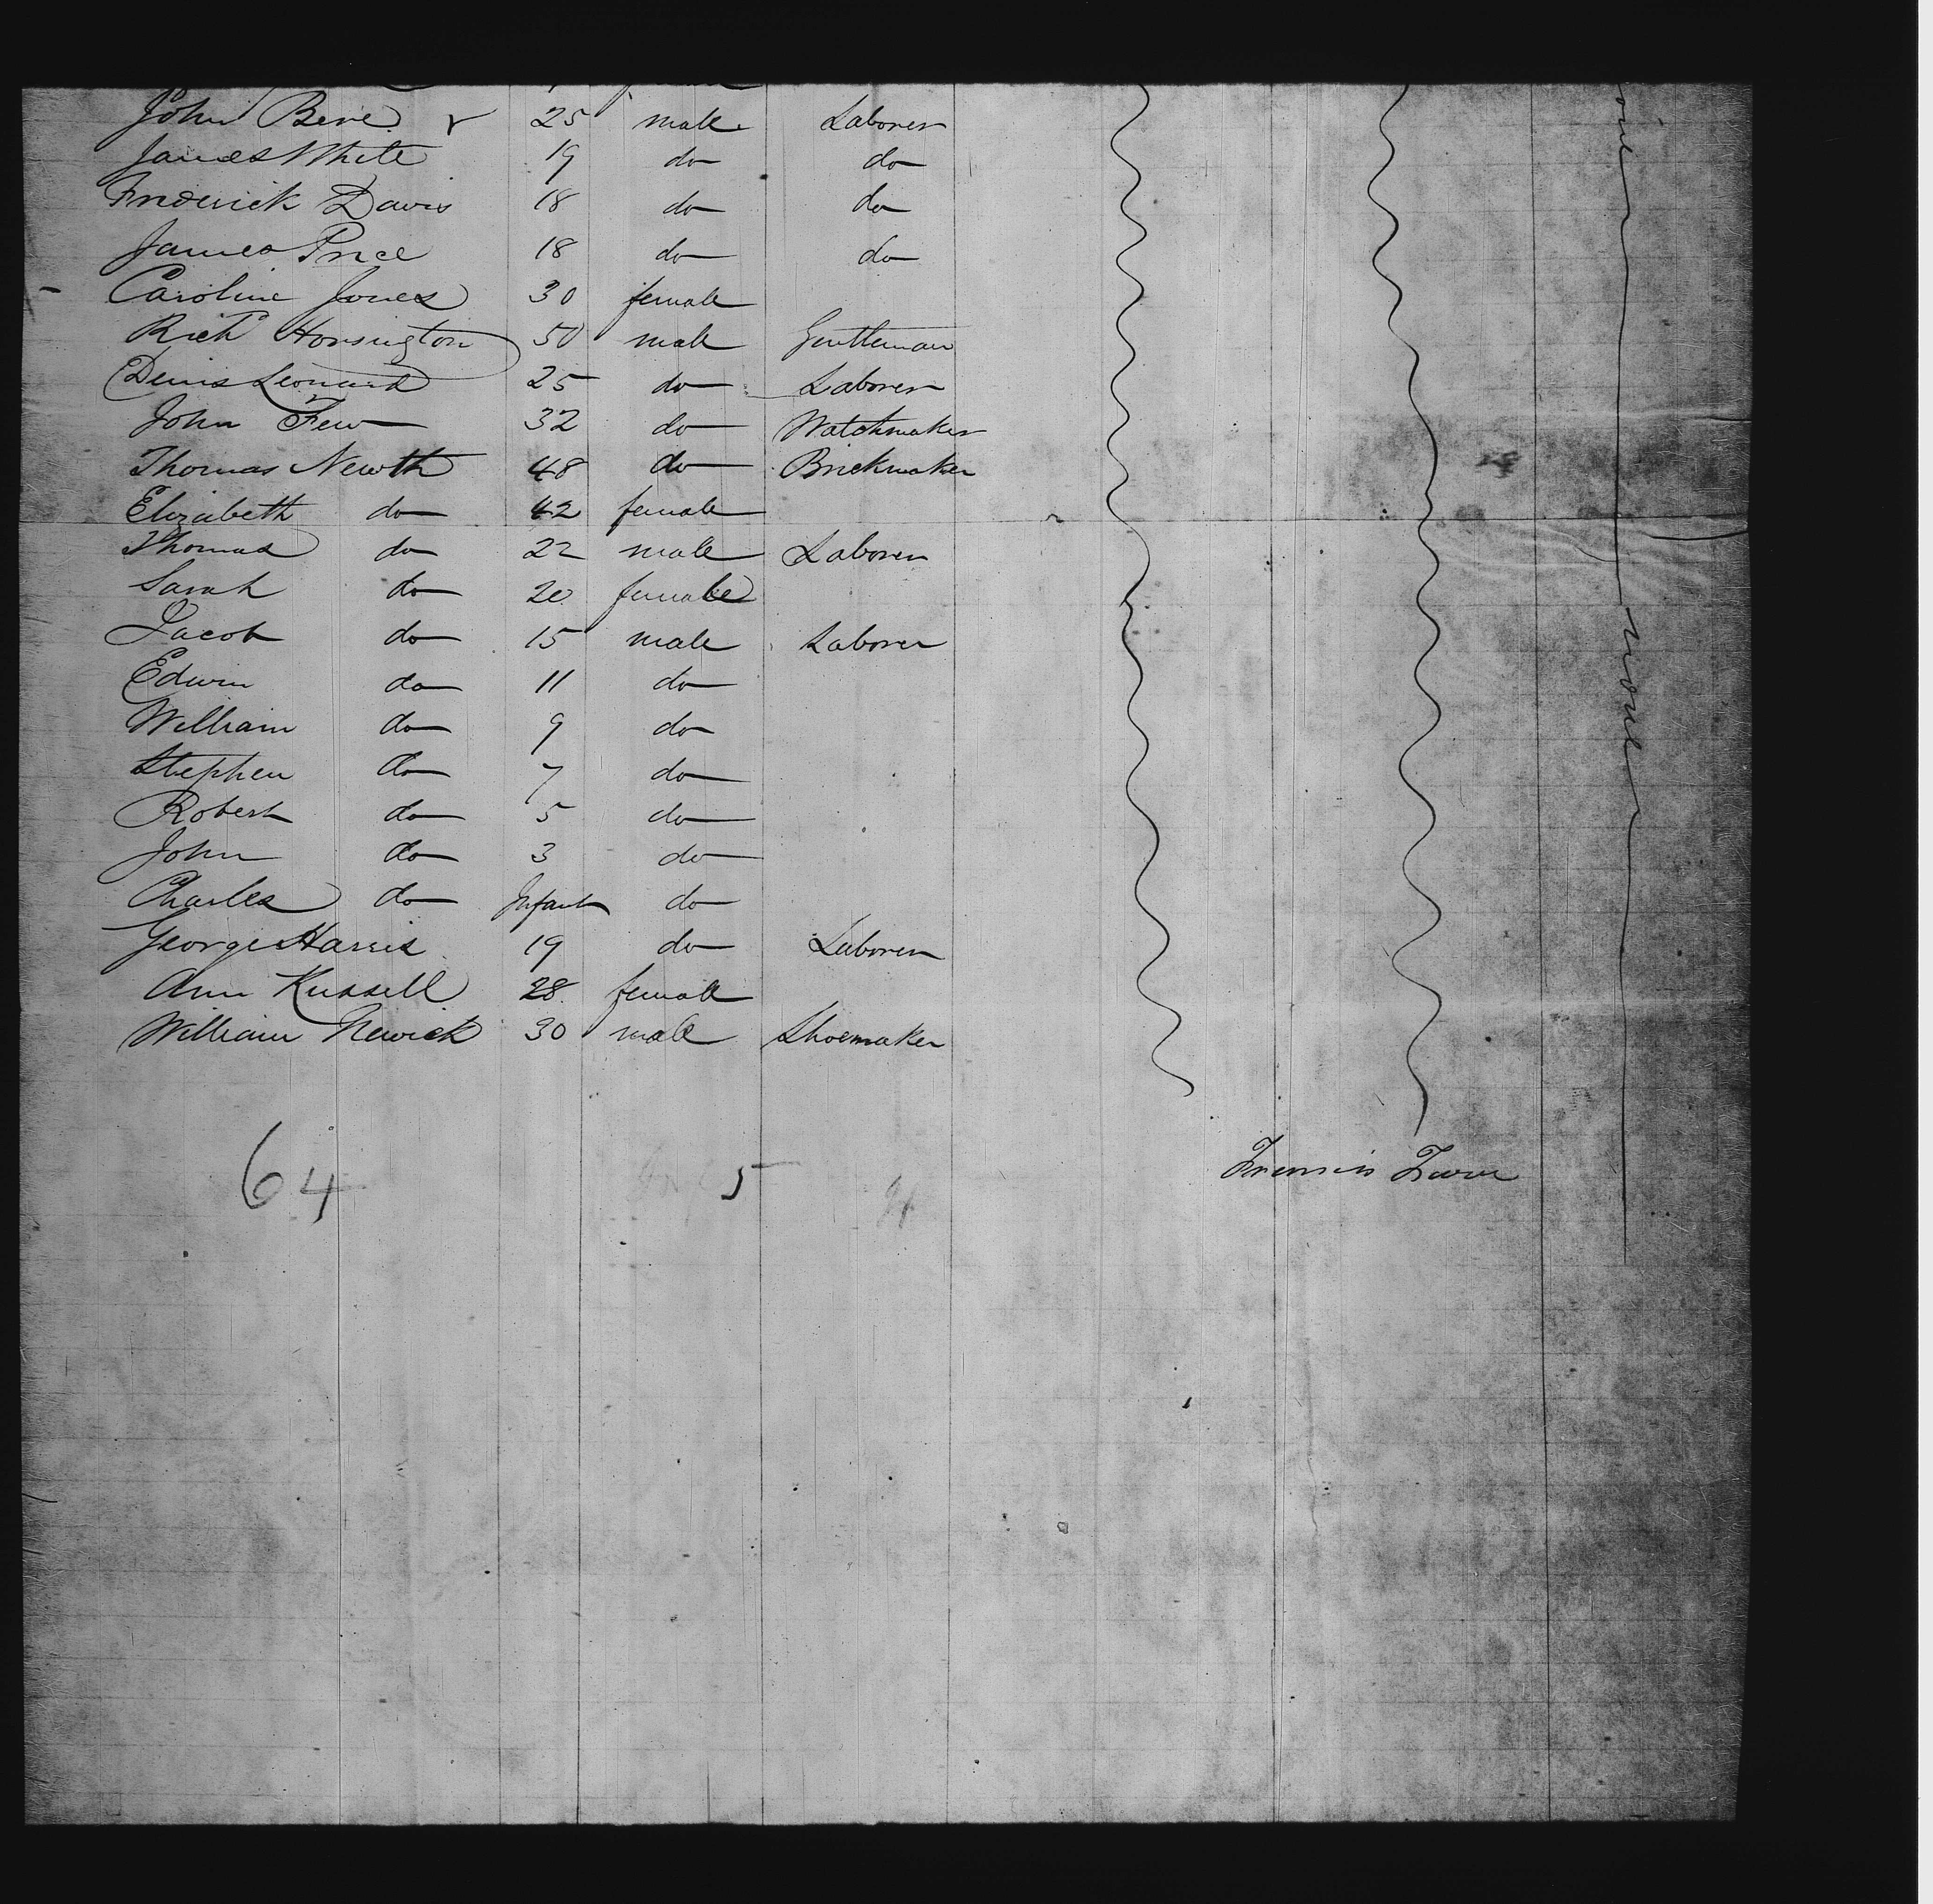 John Bere 25 male Laborer
James White 19 do do
Frederick Davis 18 do do
James Price 18 do do
Caroline Jones 30 female
Richd Horsington 50 male Gentleman
Denis Leonard 25 do Laborer
John Few 32 do Watchmaker
Thomas Newth 48 do Brickmaker
Elizabeth do 42 female
Thomas do 22 male Laborer
Sarah do 20 female
Jacob do 15 male Laborer
Edwin do 11 do
William do 9 do
Stephen do 7 do
Robert do 5 do
John do 3 do
Charles do Infant do
George Harris 19 do Laborer
Ann Russell 28 female
William Newick 30 male Shoemaker
none
64 5
Francis